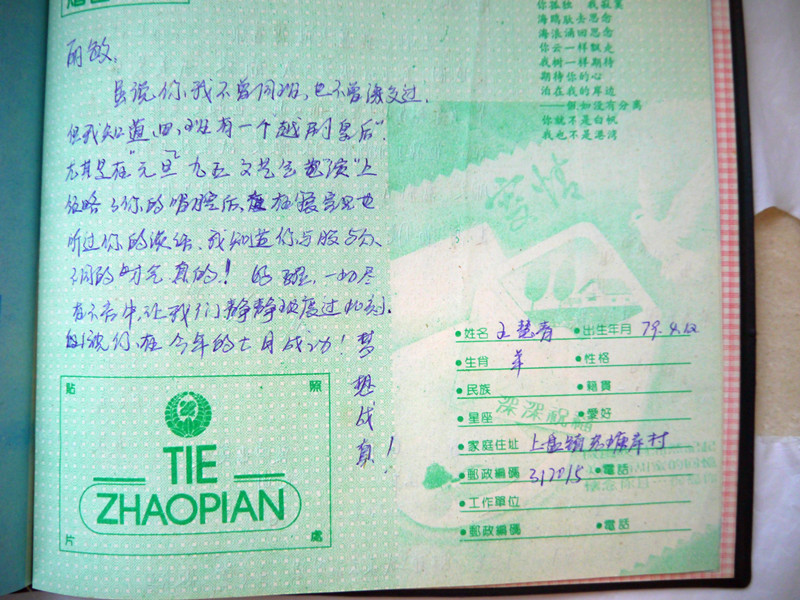 你孤独 我寂寞
海鸥放去思念
海浪涌回思念
你云一样飘走
我树一样期待
期待你的心
泊在我的岸边
——假如没有分离
你就不是白帆
我也不是港湾
丽敏:
虽说你、我不曾同班,也不曾深交过,
但我知道四班有一个"越剧皇后".
尤其是在"元旦 九五文艺会演"上
领略了你的唱腔后,在寝室里也
听过你的谈话,我知道你与
不同的 真的!的确,一切尽
在不言中,让我们静静地度过此刻.
祝你在今年的七月成功!梦
想
成
真!
真情
深深祝福
姓名 王慧青 出生年月 79.4.12
生肖 羊 性格
民族 籍貫
星座 愛好
家庭住址 上盘镇 塘岸村
郵政編碼 317015 電話
工作單位
郵政編碼 電話
貼 照
TIE
ZHAOPIAN
片 處